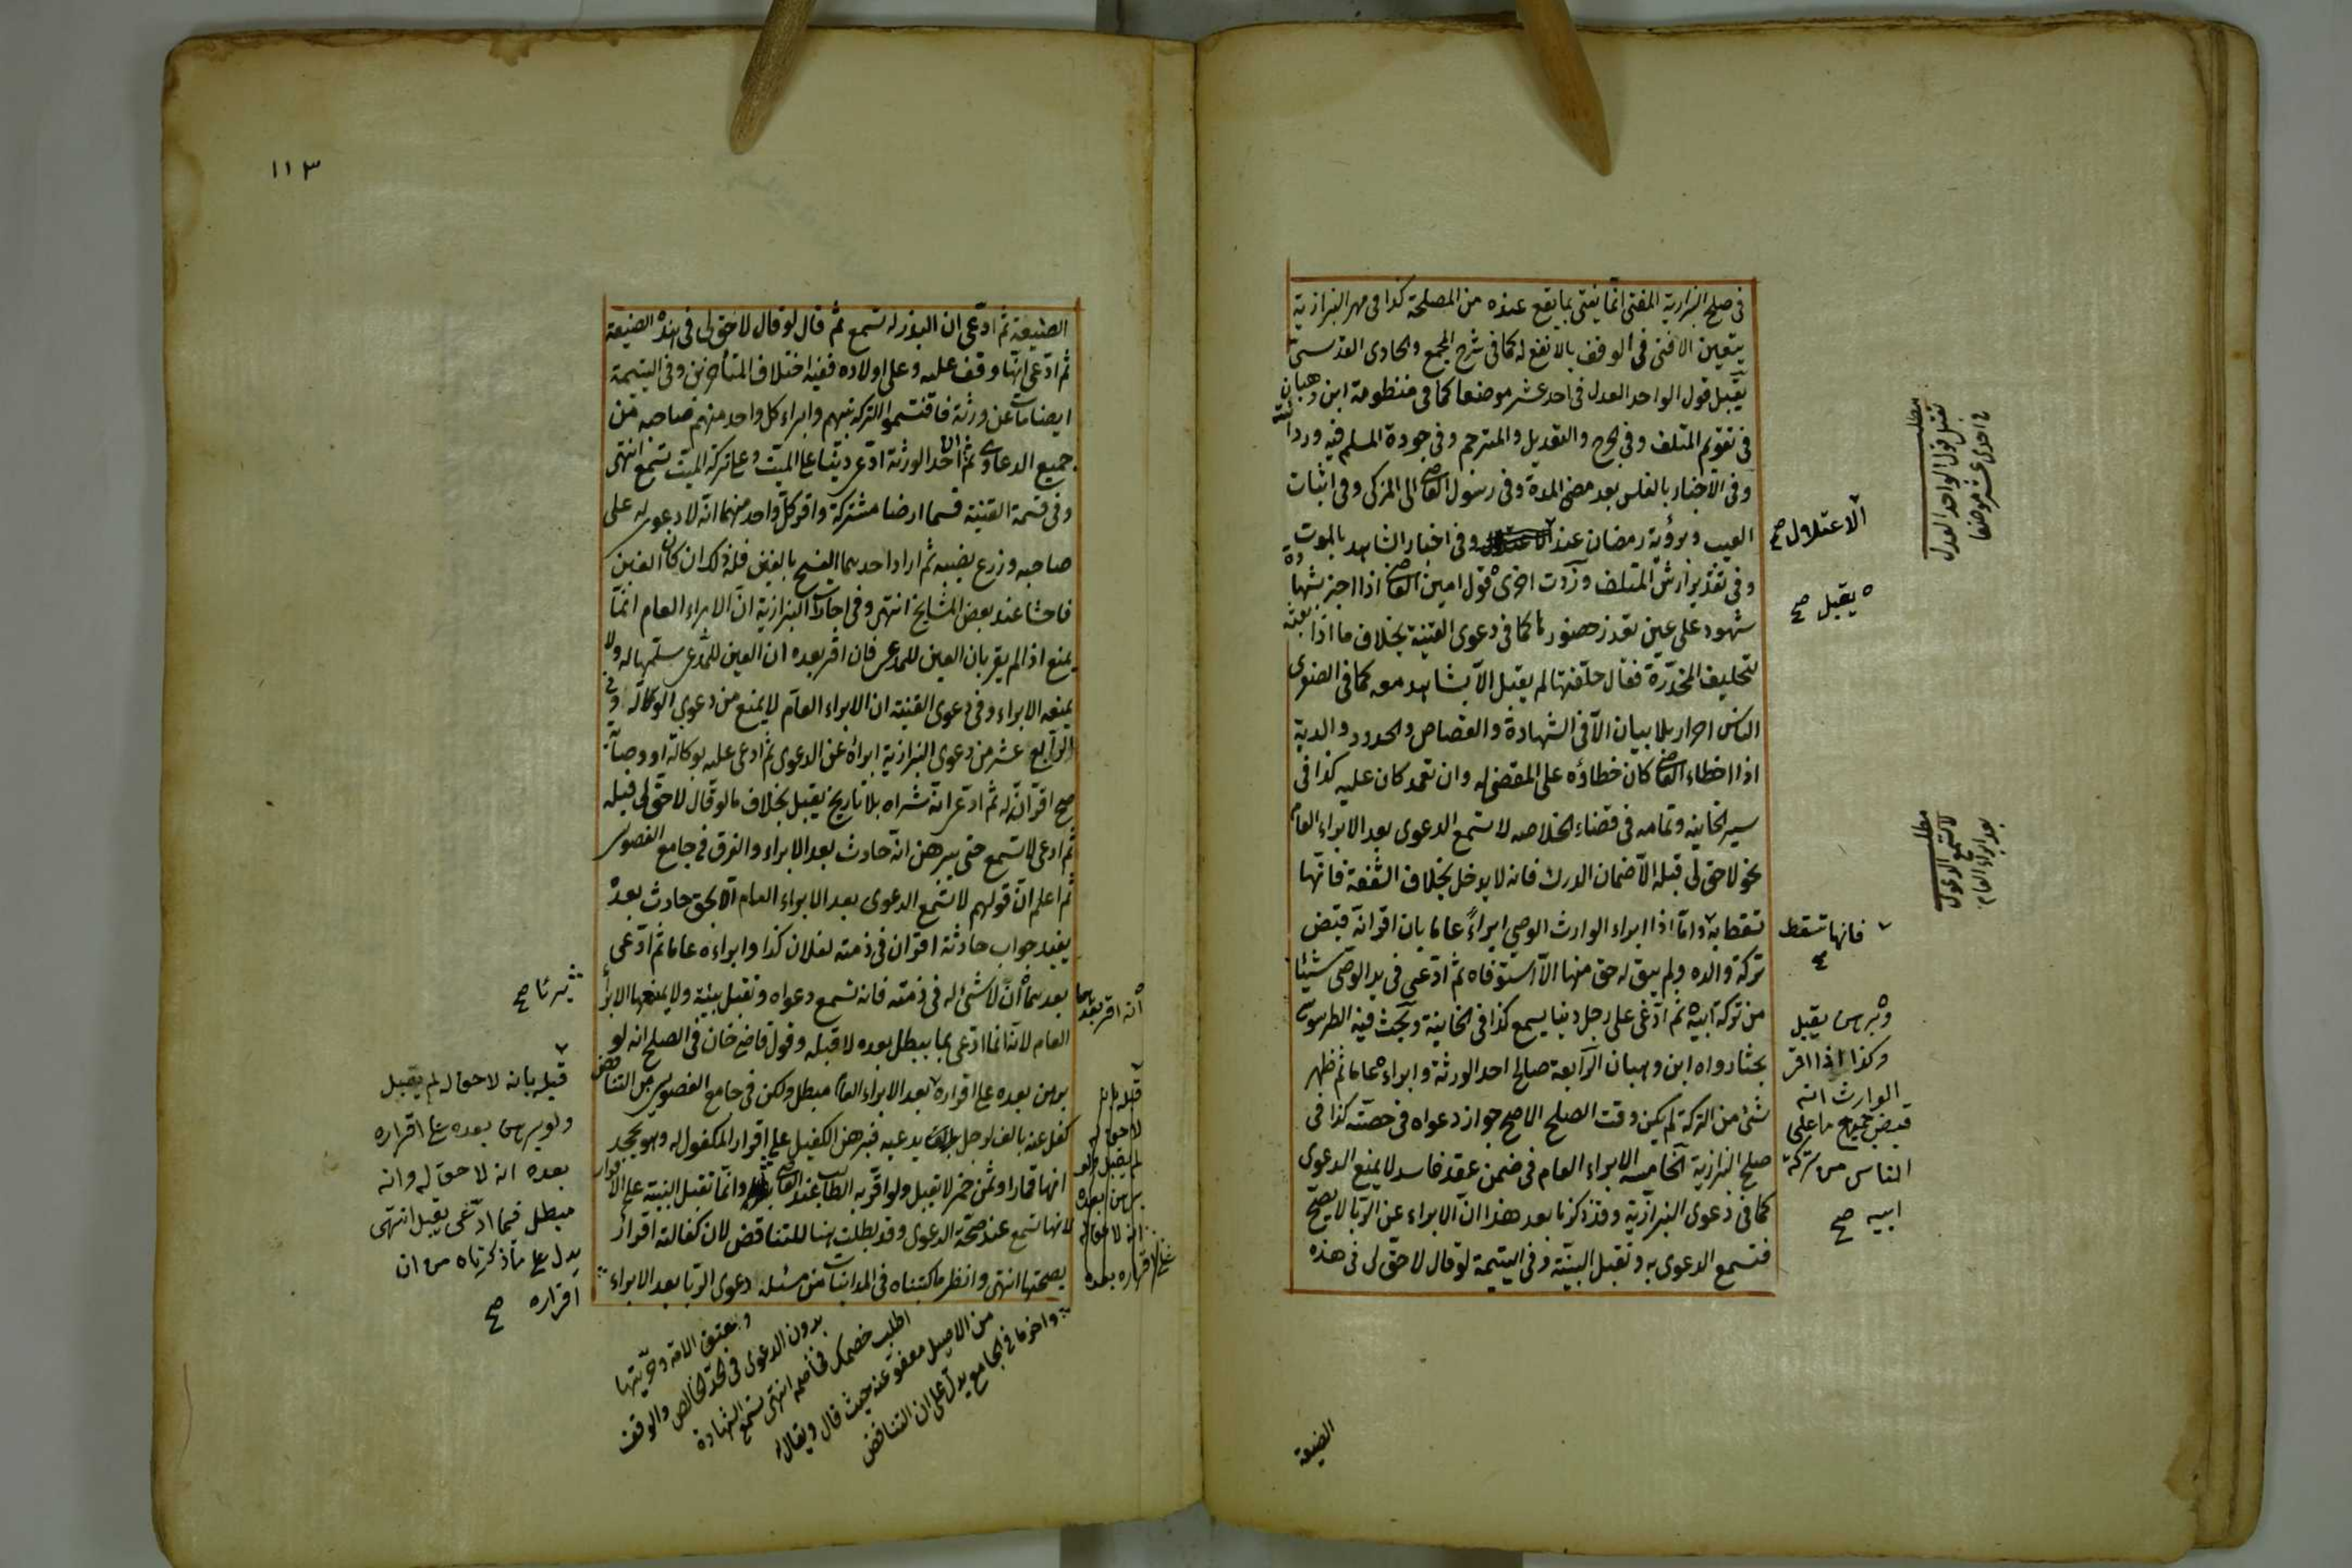 فى صلح البزازية المفتى انما يفتى بما يقع عنده من المصلحة كذا فى مهر البزازية
يتعين الافتى فى الوقف بالانفع له كما فى شرح المجمع والحاوى القدسى
يقبل قول الواحد العدل فى احد عشر موضعا كما فى منظومة ابن وهبان
فى تقويم المتلف وفى الجرح والتعديل والمترجم وفى جودة المسلم فيه ورداءته
وفى الاخبار بالفلس بعد مضى المدة وفى رسول القاضى الى المزكى وفى اثبات
العيب وبرؤية رمضان عند وفى اخبار الشاهد بالموت
وفى تقدير ارش المتلف وزدت اخرى قول امين القاضى اذا اخبر بشهادة
شهود على عين تعذر حضورها كما فى دعوى القنية بخلاف ما اذا بعثه
لتحليف المخدرة فقال حلفتها لم يقبل الا بشاهد معه كما فى الصغرى
الناس احرار بلا بيان الا فى الشهادة والقصاص والحدود والدية
اذا اخطاء القاضى كان خطاؤه على المقضى له وان تعمد كان عليه كذا فى
سير الخانية وتمامه فى قضاء الخلاصه لا تسمع الدعوى بعد الابراء العام
نحو لا حق لى قبله الا ضمان الدرك فانه لا يدخل بخلاف الشفعة فانها
تسقط به واما اذا ابراء الوارث الوصى ابراءً عاما بان اقر انه قبض
تركة والده ولم يبق له حق منها الا استوفاه ثم ادعى فى يد الوصى شيئا
من تركة ابيه ثم ادعى على رجل دينا يسمع كذا فى الخانية وبحث فيه الطرسوسى
بحثا رواه ابن وهبان الرابعة صالح احد الورثة وابراءه عاما ثم ظهر
شئ من التركة لم يكن وقت الصلح الاصح جواز دعواه فى حصته كذا فى
صلح البزازية الخامسه الابراء العام فى ضمن عقد فاسد لا يمنع الدعوى
كما فى دعوى البزازية وقد ذكرنا بعد هذا ان الابراء عن الربا لا يصح
فتسمع الدعوى به وتقبل البينة وفى اليتيمة لو قال لا حق لى فى هذه
الضيعة
مطلب
تقبل قول الواحد العدل
فى احدى عشر موضعا
الاعتلال صح
يقبل صح
مطلب
لا تسمع الدعوى
بعد ابراء العام
فانها تسقط
وبرهن يقبل
وكذا اذا اقر
الوارث انه
قبض جميع ما على
الناس من تركة
ابيه صح
١١٣
الضيعة ثم ادعى ان البذر له تسمع ثم قال لو قال لا حق لى فى هذه الضيعة
ثم ادعى انها وقف عليه وعلى اولاده ففيه اختلاف المتأخرين وفى اليتيمة
ايضا مات عن ورثة فاقتسموا التركة بينهم وابراء كل واحد منهم صاحبه من
جميع الدعاوى ثم ان احد الورثة ادعى دينا على الميت وعلى تركة الميت تسمع انتهى
وفى قسمة القنية قسما ارضا مشتركة واقر كل واحد منهما انه لا دعوى له على
صاحبه وزرع نصيبه ثم اراد احدهما الفسخ بالغبن فله ذلك ان كان الغبن
فاحشا عند بعض المشايخ انتهى وفى اجارات البزازية ان الابراء العام انما
يمنع اذا لم يقر بان العين للمدعى فان اقر بعده ان العين للمدعى سلمها له ولا
يمنعه الابراء وفى دعوى القنية ان الابراء العام لا يمنع من دعوى الوكالة وفى
الرابع عشر من دعوى البزازية ابراه عن الدعوى ثم ادعى عليه بوكالة او وصاية
صح اقر انه له ثم ادعى انه شراه بلا تاريخ يقبل بخلاف ما لو قال لا حق لى قبله
ثم ادعى لا تسمع حتى يبرهن انه حادث بعد الابراء والفرق فى جامع الفصولين
ثم اعلم ان قولهم لا تسمع الدعوى بعد الابراء العام الا بحق حادث بعده
يفيد جواب حادثة اقر ان فى ذمته لفلان كذا وابراءه عاما ثم ادعى
بعدهما ان لا شئ له فى ذمته فانه تسمع دعواه وتقبل بينته ولا يمنعها الابراء
العام لانه انما ادعى بما يبطل بعده لا قبله وقول قاضى خان فى الصلح انه لو
برهن بعده على اقراره بعد الابراء العام مبطل ولكن فى جامع الفصولين من التناقض
كفل عنه بالف لرجل يدعيه فبرهن الكفيل على اقرار المكفول له وهو يجحد
انها قمار او ثمن خمر لا تقبل ولو اقر به الطالب عند القاضى وانما تقبل البينة على الاقرار
لانها تسمع عند صحة الدعوى وقد بطلت هنا للتناقض لان كفالته اقرار
بصحتها انتهى وانظر ما كتبناه فى المداينات من مسئلة دعوى الربا بعد الابراء
انه اقر بعدهما
قبله بانه
لا حق له
لم يقبل ولو
برهن بعده
انه لا حق له
صح
قبله بانه لا حق له لم يقبل
ولو برهن بعده على اقراره
بعده انه لا حق له وانه
مبطل فيما ادعى يقبل انتهى
يدل على ما ذكرناه من ان
اقراره صح
واخر ما فى الجامع يدل على ان التناقض
من الاصيل معفو عنه حيث قال ويقال له
اطلب خصمك فخاصمه انتهى تسمع الشهادة
بدون الدعوى فى الحد الخالص والوقف
وعتق الامة وحريتها